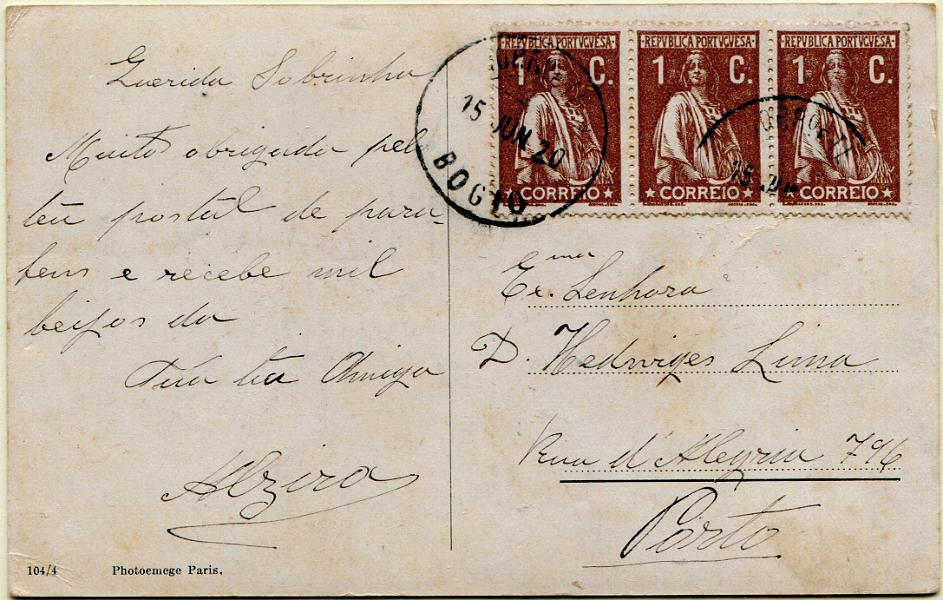 Querida Sobrinha
Muito obrigada pelo
teu postal de para-
bens e recebe mil
beijos da
Tua tia Amiga
Alzira
104/4 Photoemege Paris.
REPVBLICA PORTVGVESA
1 C.
CORREIO
REPVBLICA PORTVGVESA
1 C.
CORREIO
REPVBLICA PORTVGVESA
1 C.
CORREIO
15 JUN 20
15 JUN
Exma. Senhora
D. Hedwiges Lima
Rua d'Alegria 796
Porto